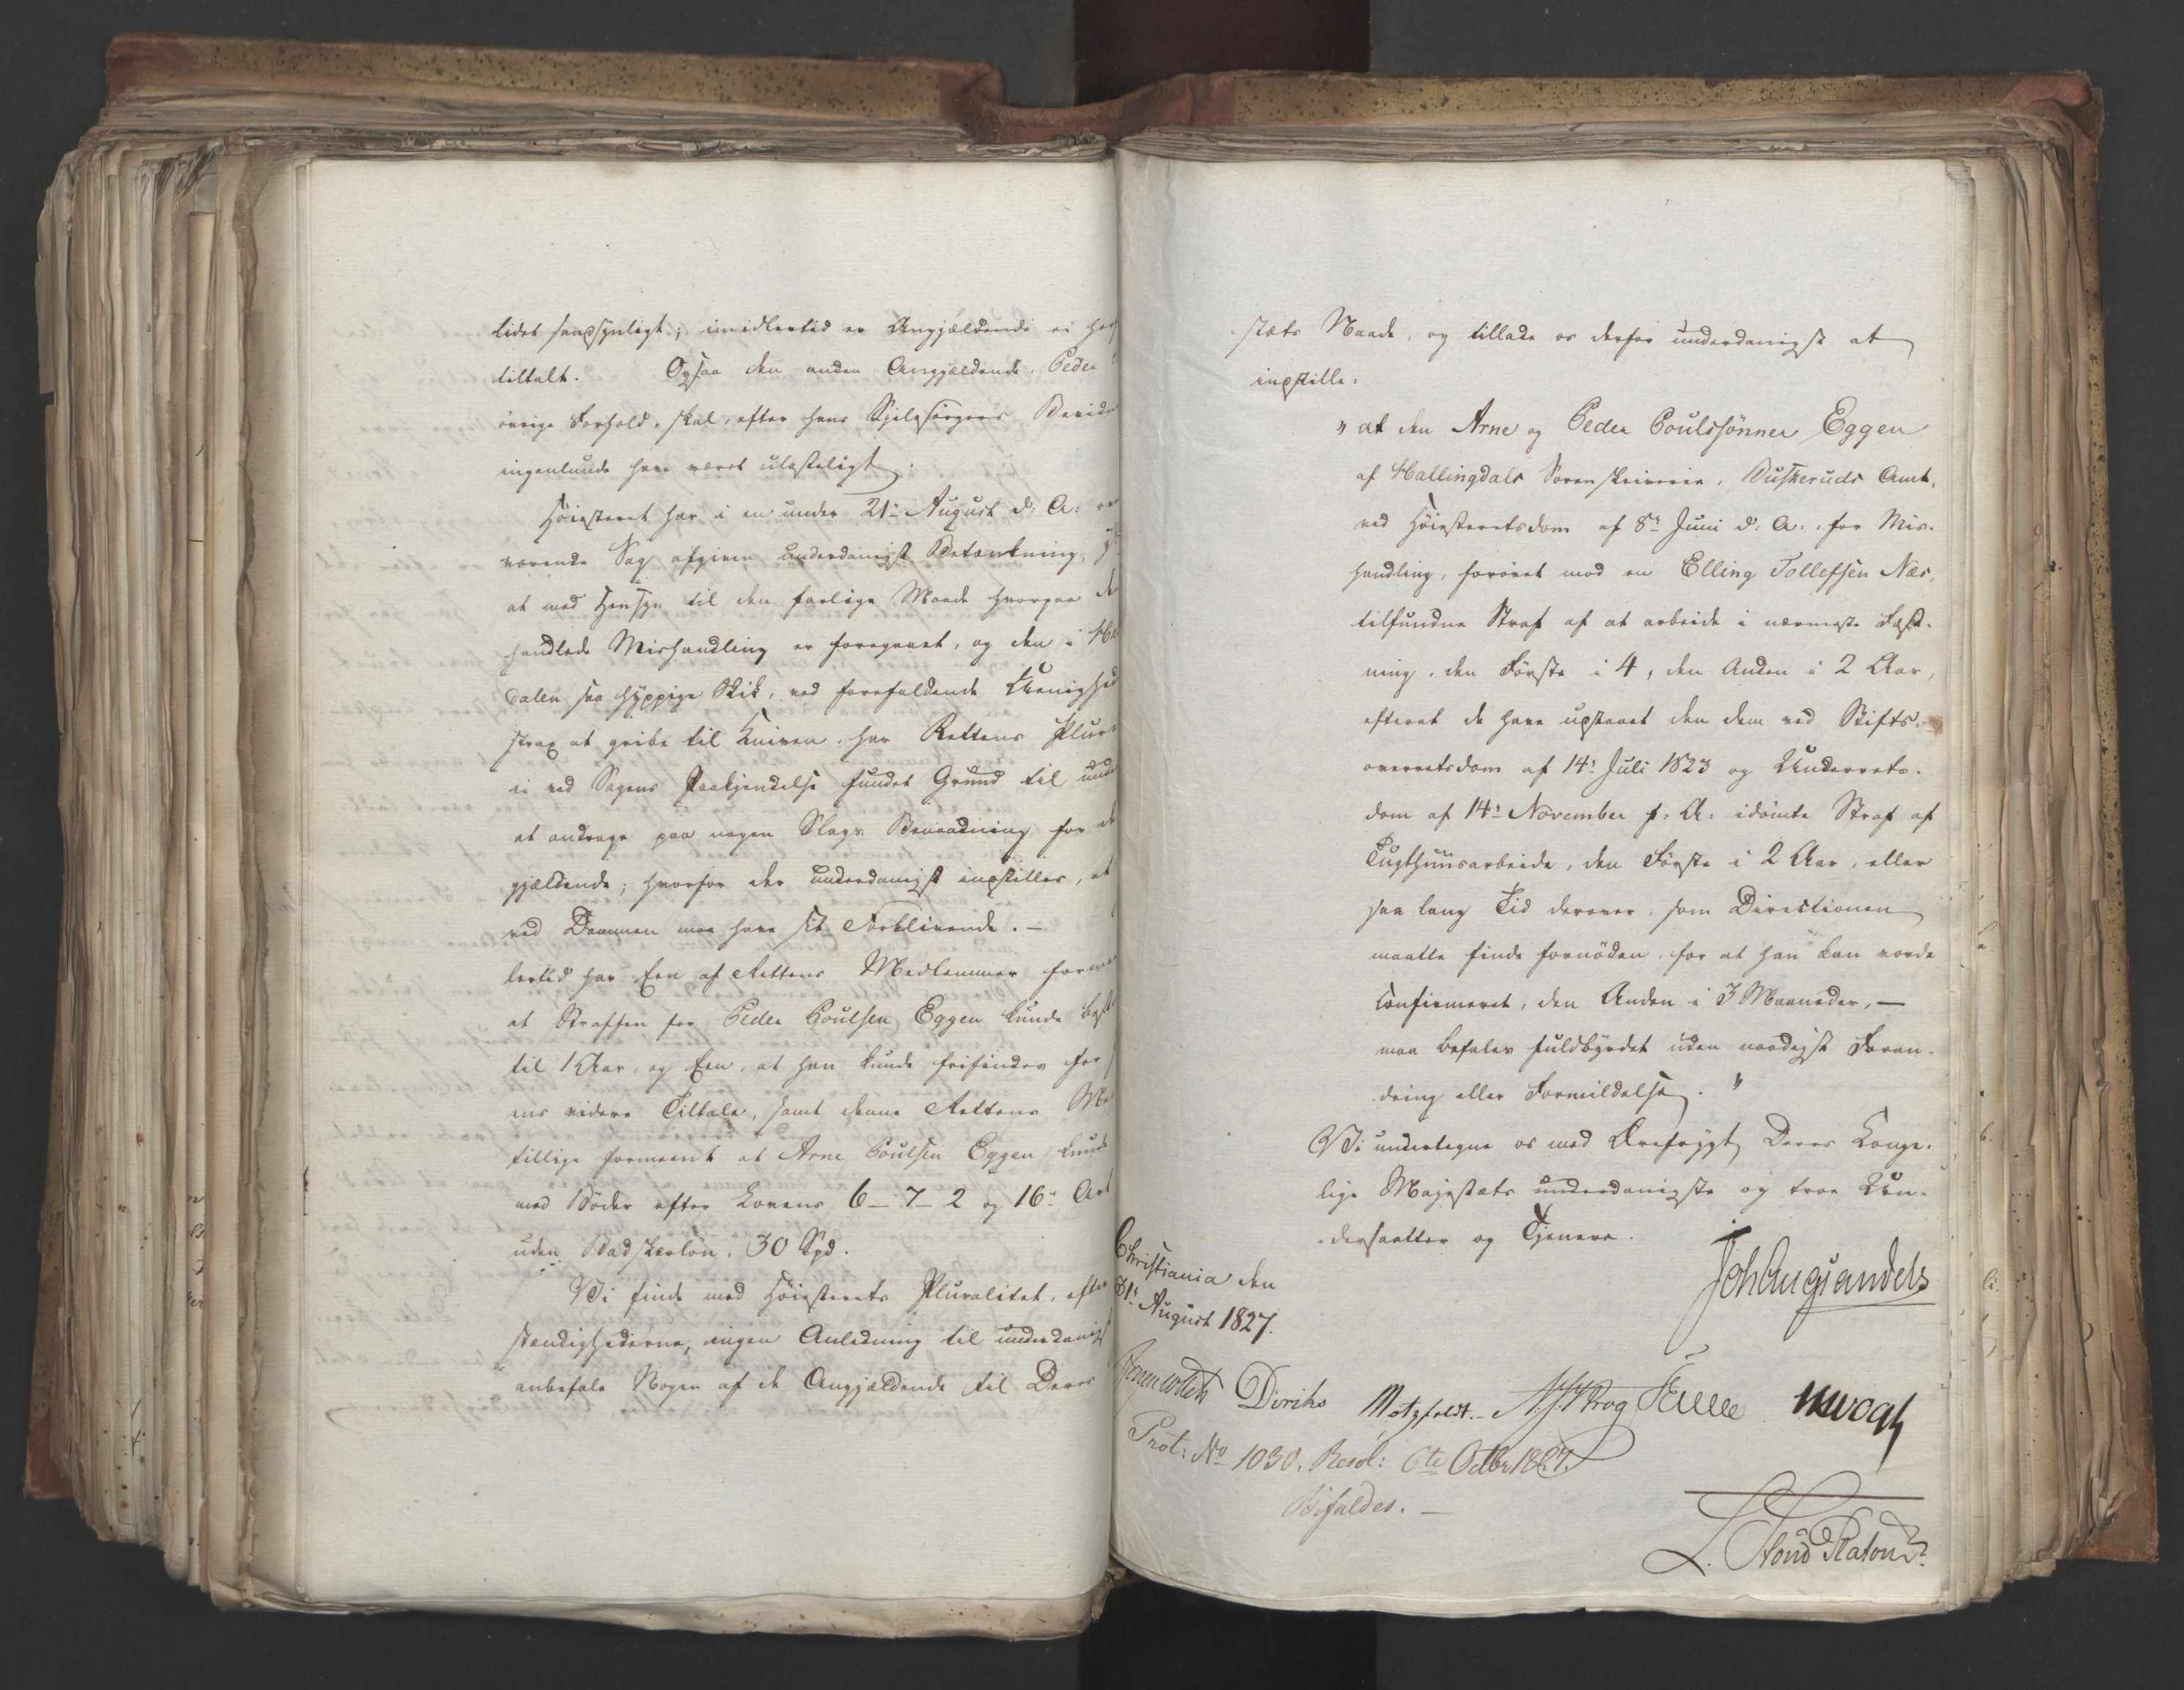 lidet sandsynligt; imidlertid er Angjældende ei her
tiltalt. Ogsaa den anden Angjældende, Peder
øvrige Forhold, skal, efter hans Sjelesørgers
ingenlunde have været ulasteligt.
Høiesteret har i en under 21de August d: A:
værende Sag afgiven underdanigst Betænkning,
at med Hensyn til den farlige Maade hvorpaa
handlede Mishandling er foregaaet, og den i
dalen saa hyppige Skik, ved forefaldende Uenighed
strax at gribe til Kniven, har Rettens
ei ved Sagens Paakjendelse fundet Grund til
at andrage paa nogen Slags Benaadning for
gjældende; hvorfor det underdanigst indstilles, at
ved Dommen maa have sit Forblivende. —
lertid har Een af Rettens Medlemmer
at Straffen for Peder Poulsen Eggen kunde
til 1 Aar, og Een, at han kunde frifindes for
ens videre Tiltale, samt denne Rettens
tillige formeent at Arne Poulsen Eggen kunde
med Bøder efter Lovens 6 – 7 – 2 og 16de Art
uden Badskerløn, 30 Spd.
Vi finde med Høiesterets Pluralitet, efter
stændighederne, ingen Anledning til underdanigst
anbefale Nogen af de Angjældende til Deres
stæts Naade, og tillade os derfor underdanigst at
indstille:
" at den Arne og Peder Poulssønner Eggen
af Hallingdals Sorenskriverie, Buskeruds Amt,
ved Høiesteretsdom af 8de Juni d: A:, for Mis-
handling, forøvet mod en Elling Tollefsen Næs,
tilfundne Straf af at arbeide i nærmeste Fæst-
ning, den Første i 4, den Anden i 2 Aar,
efterat de have udstaaet den dem ved Stifts-
overretsdom af 14de Juli 1823 og Underrets-
dom af 14de November f: A: idømte Straf af
Tugthuusarbeide, den Første i 2 Aar, eller
saa lang Tid derover, som Directionen
maatte finde fornøden, for at han kan vorde
confirmeret, den Anden i 3 Maaneder, —
maa befales fuldbyrdet uden naadigst Foran-
dring eller Formildelse. "
Vi undertegne os med Ærefrygt Deres Konge-
lige Majestæts underdanigste og troe Un-
dersaatter og Tjenere.
Christiania den
31te August 1827.
Joh Aug Sandels
Jonas Collett Diriks Motzfeldt.– N. J. Krog Fasting JH Vogt
Prot: No 1030. Resol: 6te Octbr 1827.
Bifaldes. —
L. Stoud Platou